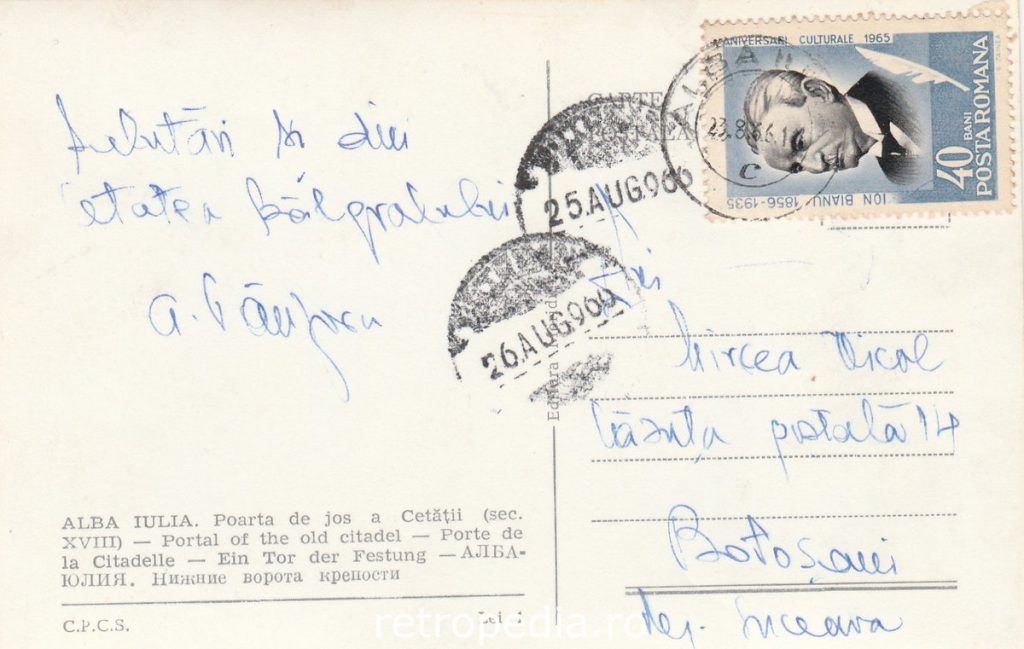 Salutări și din
Cetatea Bălgradului
ALBA IULIA. Poarta de jos a Cetății (sec.
XVIII) — Portal of the old citadel — Porte de
la Citadelle — Ein Tor der Festung — АЛБА-
ЮЛИЯ. Нижние ворота крепости
C.P.C.S.
Lei 1
Editura
CARTE
POȘTALĂ
25.AUG966
26.AUG966
ALBA
23.8.66
C
ANIVERSARI CULTURALE 1965
40 BANI
POSTA ROMANA
ION BIANU 1856-1935
Mircea
Căsuța poștală 14
Botoșani
reg. Suceava
retropedia.ro